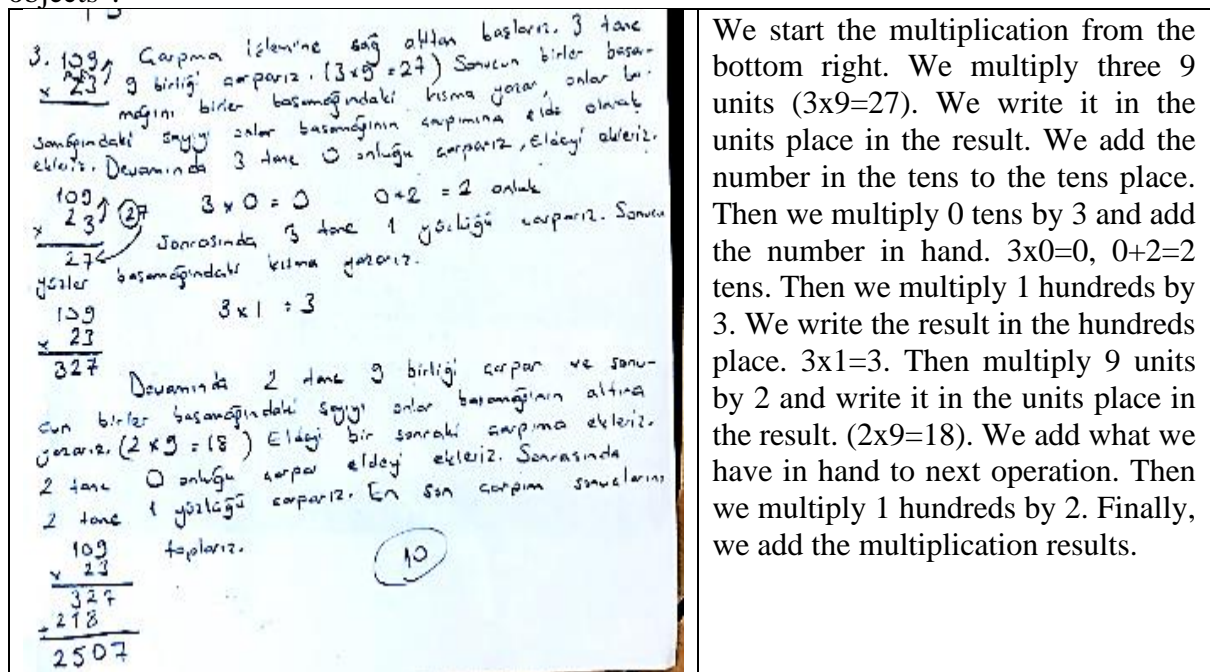 objects".
3. 109 Çarpma işlemine sağ alttan başlarız. 3 tane
x 23 9 birliği çarparız. (3x9=27) Sonucun birler basa-
mağını birler basamağındaki kısma yazar, onlar ba-
samağındaki sayıyı onlar basamağının çarpımına elde olarak
ekleriz. Devamında 3 tane 0 onluğu çarparız, eldeyi ekleriz.
109
x 23 27 3 x 0 = 0 0+2 = 2 onluk
27 Sonrasında 3 tane 1 yüzlüğü çarparız. Sonucu
yüzler basamağındaki kısma yazarız.
109 3 x 1 = 3
x 23
327
Devamında 2 tane 9 birliği çarpar ve sonu-
cun birler basamağındaki sayıyı onlar basamağının altına
yazarız. (2 x 9 = 18) Eldeyi bir sonraki çarpıma ekleriz.
2 tane 0 onluğu çarpar eldeyi ekleriz. Sonrasında
2 tane 1 yüzlüğü çarparız. En son çarpım sonuçlarını
109 toplarız. 10
x 23
327
+ 218
2507
We start the multiplication from the
bottom right. We multiply three 9
units (3x9=27). We write it in the
units place in the result. We add the
number in the tens to the tens place.
Then we multiply 0 tens by 3 and add
the number in hand. 3x0=0, 0+2=2
tens. Then we multiply 1 hundreds by
3. We write the result in the hundreds
place. 3x1=3. Then multiply 9 units
by 2 and write it in the units place in
the result. (2x9=18). We add what we
have in hand to next operation. Then
we multiply 1 hundreds by 2. Finally,
we add the multiplication results.